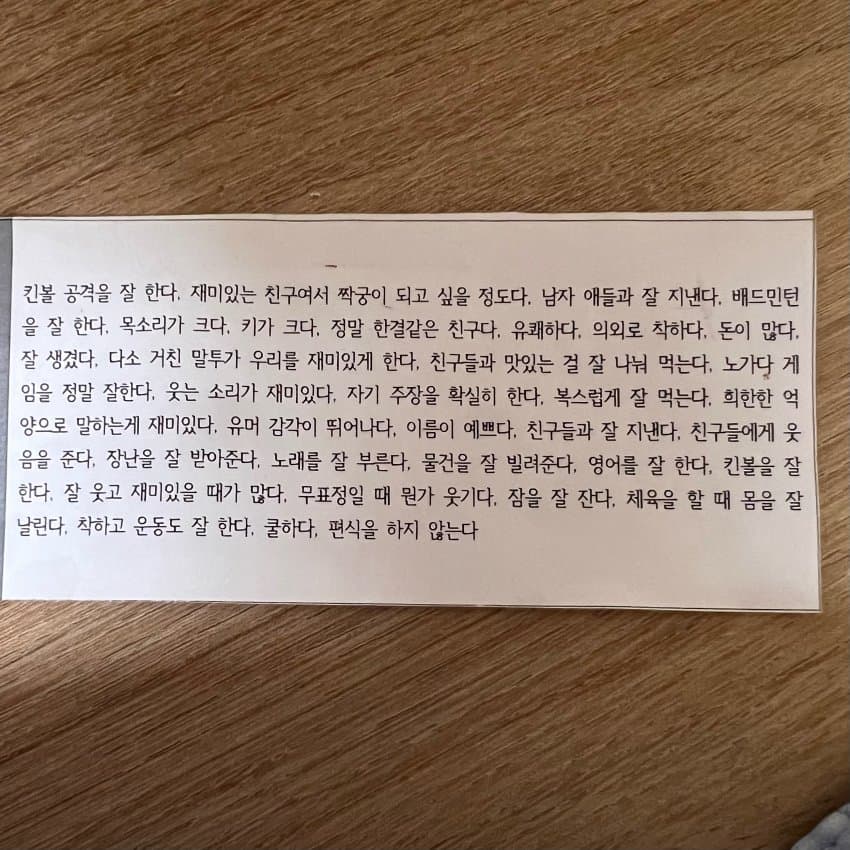 킨볼 공격을 잘 한다, 재미있는 친구여서 짝궁이 되고 싶을 정도다, 남자 애들과 잘 지낸다, 배드민턴
을 잘 한다, 목소리가 크다, 키가 크다, 정말 한결같은 친구다, 유쾌하다, 의외로 착하다, 돈이 많다,
잘 생겼다, 다소 거친 말투가 우리를 재미있게 한다, 친구들과 맛있는 걸 잘 나눠 먹는다, 노가다 게
임을 정말 잘한다, 웃는 소리가 재미있다, 자기 주장을 확실히 한다, 복스럽게 잘 먹는다, 희한한 억
양으로 말하는게 재미있다, 유머 감각이 뛰어나다, 이름이 예쁘다, 친구들과 잘 지낸다, 친구들에게 웃
음을 준다, 장난을 잘 받아준다, 노래를 잘 부른다, 물건을 잘 빌려준다, 영어를 잘 한다, 킨볼을 잘
한다, 잘 웃고 재미있을 때가 많다, 무표정일 때 뭔가 웃기다, 잠을 잘 잔다, 체육을 할 때 몸을 잘
날린다, 착하고 운동도 잘 한다, 쿨하다, 편식을 하지 않는다